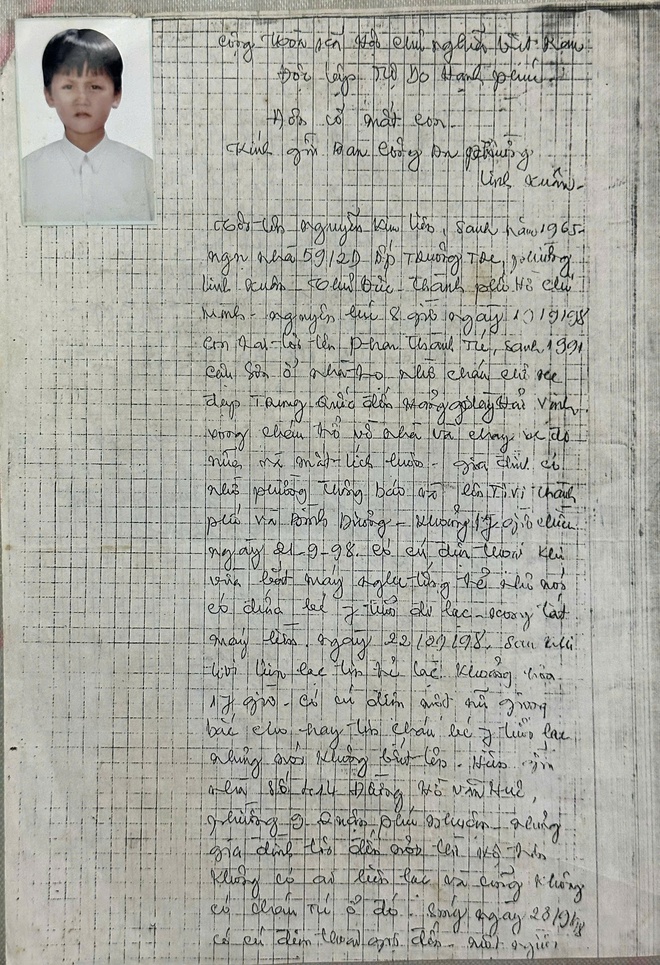 Cộng Hòa Xã Hội Chủ nghĩa Việt Nam
Độc lập Tự Do Hạnh phúc
Đơn cớ mất con
Kính gửi Ban Công An phường
Linh Xuân -
Tôi tên Nguyễn Kim Liên, sanh năm 1965
ngụ nhà 59/2D Ấp Trường Tre, phường
Linh Xuân - Thủ Đức - Thành phố Hồ Chí
Minh - nguyên lúc 8 giờ ngày 19/9/98
con trai tôi tên Phan Thanh Tú, sanh 1991
ở nhà nhờ cháu chỉ xe
đạp Trung Quốc đến xưởng giày Hải Vinh
xong cháu trở về nhà và chạy xe đó
nữa và mất tích luôn - gia đình có
nhờ phường thông báo và lên Tivi thành
phố và Bình Dương - Khoảng 17 giờ chiều
ngày 21-9-98. có cú điện thoại khi
vừa bắt máy nghe tiếng trẻ nhỏ nói
có đứa bé 7 tuổi đi lạc. xong tắt
máy liền. ngày 22/09/98. sau khi
tivi liên lạc tin trẻ lạc. Khoảng hơn
17 giờ - có cú điện một nữ giọng
bắc cho hay tin cháu bé 7 tuổi lạc
nhưng nói không biết tên. Hiện
nhà số 414 Đường Hồ Văn Huê,
phường 9 Quận Phú Nhuận - nhưng
gia đình tôi đến nơi thì
không có ai liên lạc và cũng không
có cháu Tú ở đó. Sáng ngày 23/9/98
có cú điện thoại gọi đến - một người